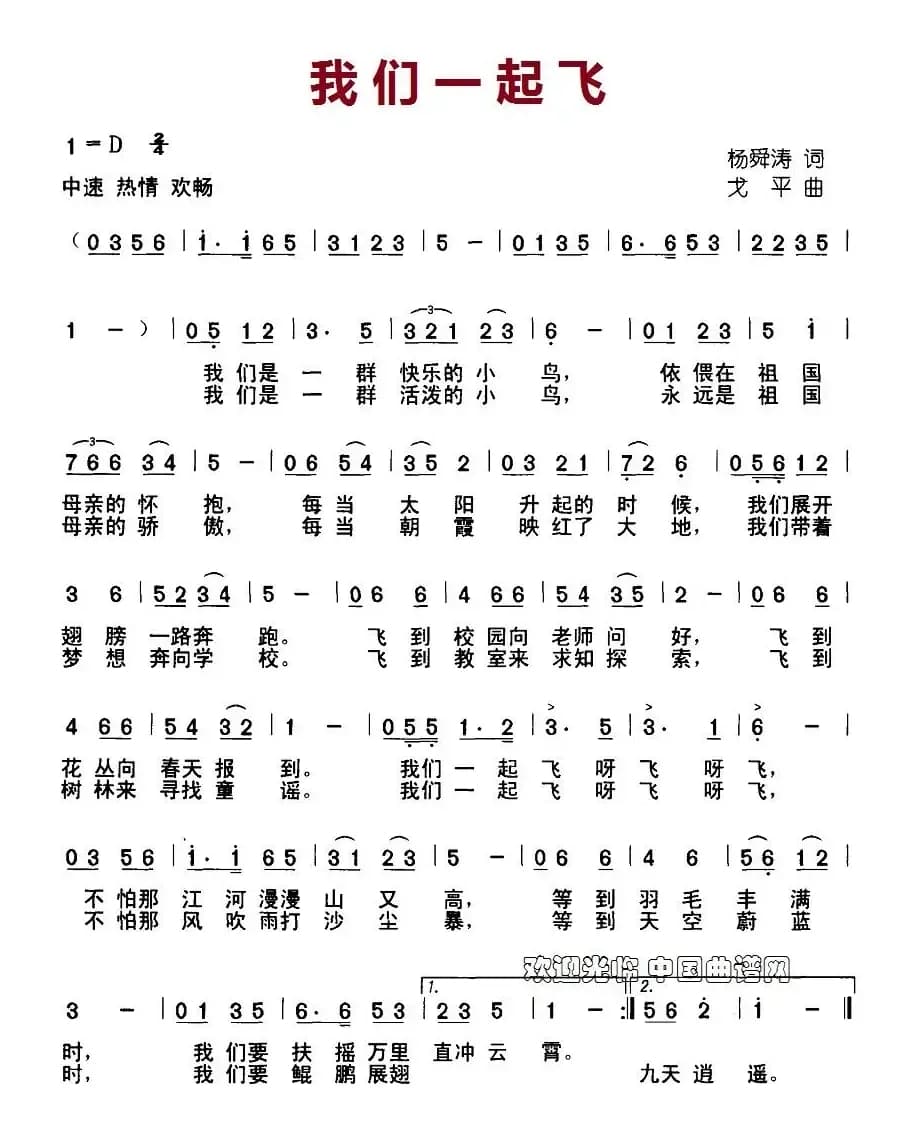 我们一起飞
1=D 2/4
杨舜涛 词
中速 热情 欢畅
戈 平 曲
(0356 | i· i65 | 3123 | 5 - | 0135 | 6· 653 | 2235 |
1 - ) | 05 12 | 3· 5 | 321 23 | 6 - | 01 23 | 5 i |
我 们是 一 群 快乐的 小 鸟, 依 偎在 祖 国
我 们是 一 群 活泼的 小 鸟, 永 远是 祖 国
766 34 | 5 - | 06 54 | 35 2 | 03 21 | 72 6 | 056 12 |
母亲的 怀 抱, 每 当 太 阳 升 起的 时 候, 我们展开
母亲的 骄 傲, 每 当 朝 霞 映 红了 大 地, 我们带着
3 6 | 5234 | 5 - | 06 6 | 4 66 | 54 35 | 2 - | 06 6 |
翅 膀 一路奔 跑。 飞 到 校 园向 老师 问 好, 飞 到
梦 想 奔向学 校。 飞 到 教 室来 求知 探 索, 飞 到
4 66 | 54 32 | 1 - | 055 1·2 | 3· 5 | 3· 1 | 6 - |
花 丛向 春天 报 到。 我们 一 起 飞 呀 飞 呀 飞,
树 林来 寻找 童 谣。 我们 一 起 飞 呀 飞 呀 飞,
03 56 | i· i 65 | 31 23 | 5 - | 06 6 | 4 6 | 56 12 |
不 怕那 江 河 漫漫 山 又 高, 等 到 羽 毛 丰 满
不 怕那 风 吹 雨打 沙 尘 暴, 等 到 天 空 蔚 蓝
欢迎光临 中国曲谱网
1. 2.
3 - | 01 35 | 6· 6 53 | 235 5 | 1 - :‖ 562 2 | i - ‖
时, 我 们要 扶 摇 万里 直冲 云 霄。
时, 我 们要 鲲 鹏 展翅 九天 逍 遥。